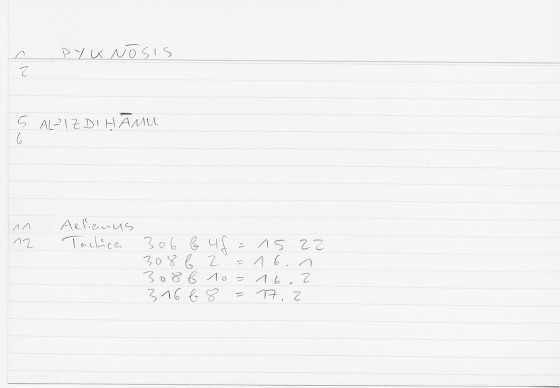 1 PYKNŌSIS
2
5 AL-IZDIḤĀMU
6
11 Aelianus
12 Tactica 306 b 4f = 15.22
308 b 2 = 16.1
308 b 10 = 16.2
316 b 8 = 17.2